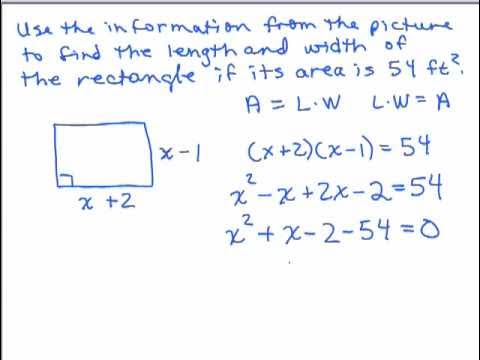 Use the information from the picture
to find the length and width of
the rectangle if its area is 54 ft².
A = L·W L·W = A
x - 1 (x+2)(x-1) = 54
x + 2 x² - x + 2x - 2 = 54
x² + x - 2 - 54 = 0